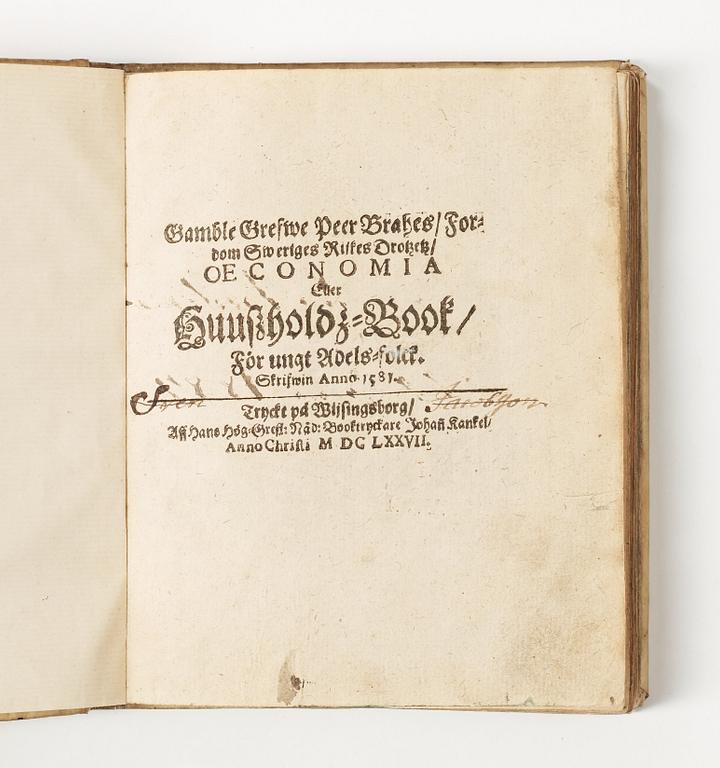 Gamble Grefwe Peer Brahes/ For-
dom Sweriges Rijkes Drotzetz/
OECONOMIA
Eller
Huußholdz-Book/
För ungt Adels-folck.
Skrifwin Anno 1581.
Sven Jacobson
Tryckt på Wijsingsborg/
Aff Hans Hög-Grefl: Näd: Booktryckare Johan Kankel/
Anno Christi M DC LXXVII.